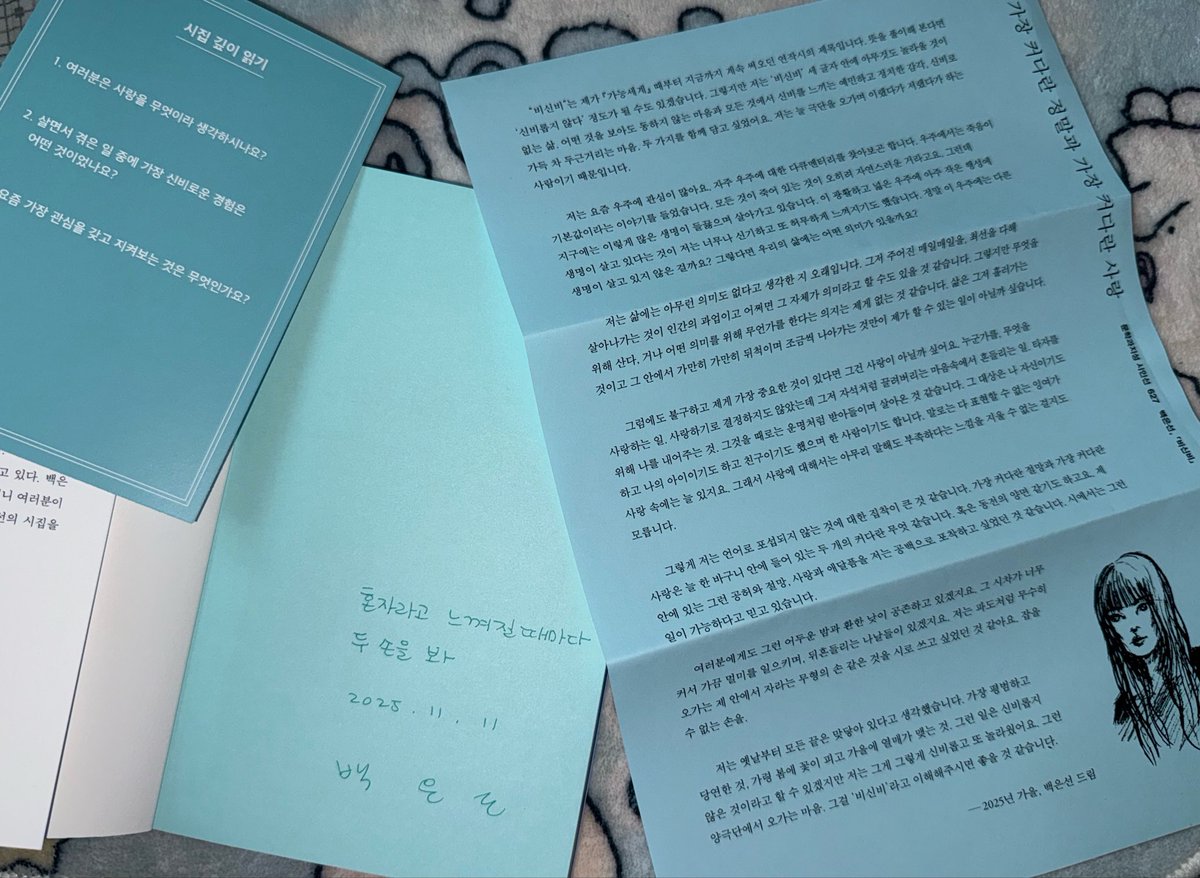 시집 깊이 읽기
1. 여러분은 사랑을 무엇이라 생각하시나요?
2. 살면서 겪은 일 중에 가장 신비로운 경험은
어떤 것이었나요?
요즘 가장 관심을 갖고 지켜보는 것은 무엇인가요?
고 있다. 백은
니 여러분이
선의 시집을
혼자라고 느껴질 때마다
두 손을 봐
2025. 11. 11
백은선
가장 커다란 절망과 가장 커다란 사랑
문학과지성 시인선 627 백은선, 『비신비』
“비신비”는 제가 『가능세계』 때부터 지금까지 계속 써오던 연작시의 제목입니다. 뜻을 풀이해 본다면
‘신비롭지 않다’ 정도가 될 수도 있겠습니다. 그렇지만 저는 ‘비신비’ 세 글자 안에 아무것도 놀라울 것이
없는 삶, 어떤 것을 보아도 동하지 않는 마음과 모든 것에서 신비를 느끼는 예민하고 정치한 감각, 신비로
가득 차 두근거리는 마음, 두 가지를 함께 담고 싶었어요. 저는 늘 극단을 오가며 이랬다가 저랬다가 하는
사람이기 때문입니다.
저는 요즘 우주에 관심이 많아요. 자주 우주에 대한 다큐멘터리를 찾아보곤 합니다. 우주에서는 죽음이
기본값이라는 이야기를 들었습니다. 모든 것이 죽어 있는 것이 오히려 자연스러운 거라고요. 그런데
지구에는 이렇게 많은 생명이 들끓으며 살아가고 있습니다. 이 광활하고 넓은 우주에 아주 작은 행성에
생명이 살고 있다는 것이 저는 너무나 신기하고 또 허무하게 느껴지기도 했습니다. 정말 이 우주에는 다른
생명이 살고 있지 않은 걸까요? 그렇다면 우리의 삶에는 어떤 의미가 있을까요?
저는 삶에는 아무런 의미도 없다고 생각한 지 오래입니다. 그저 주어진 매일매일을, 최선을 다해
살아나가는 것이 인간의 과업이고 어쩌면 그 자체가 의미라고 할 수도 있을 것 같습니다. 그렇지만 무엇을
위해 산다, 거나 어떤 의미를 위해 무언가를 한다는 의지는 제게 없는 것 같습니다. 삶은 그저 흘러가는
것이고 그 안에서 가만히 가만히 뒤척이며 조금씩 나아가는 것만이 제가 할 수 있는 일이 아닐까 싶습니다.
그럼에도 불구하고 제게 가장 중요한 것이 있다면 그건 사랑이 아닐까 싶어요. 누군가를, 무엇을
사랑하는 일. 사랑하기로 결정하지도 않았는데 그저 자석처럼 끌려버리는 마음속에서 흔들리는 일. 타자를
위해 나를 내어주는 것. 그것을 때로는 운명처럼 받아들이며 살아온 것 같습니다. 그 대상은 나 자신이기도
하고 나의 아이이기도 하고 친구이기도 했으며 한 사람이기도 합니다. 말로는 다 표현할 수 없는 잉여가
사랑 속에는 늘 있지요. 그래서 사랑에 대해서는 아무리 말해도 부족하다는 느낌을 지울 수 없는 걸지도
모릅니다.
그렇게 저는 언어로 포섭되지 않는 것에 대한 집착이 큰 것 같습니다. 가장 커다란 절망과 가장 커다란
사랑은 늘 한 바구니 안에 들어 있는 두 개의 커다란 무엇 같습니다. 혹은 동전의 양면 같기도 하고요. 제
안에 있는 그런 공허와 절망, 사랑과 애달픔을 저는 공백으로 포착하고 싶었던 것 같습니다. 시에서는 그런
일이 가능하다고 믿고 있습니다.
여러분에게도 그런 어두운 밤과 환한 낮이 공존하고 있겠지요. 그 시차가 너무
커서 가끔 멀미를 일으키며, 뒤흔들리는 나날들이 있겠지요. 저는 파도처럼 무수히
오가는 제 안에서 자라는 무형의 손 같은 것을 시로 쓰고 싶었던 것 같아요. 잡을
수 없는 손을.
저는 옛날부터 모든 끝은 맞닿아 있다고 생각했습니다. 가장 평범하고
당연한 것, 가령 봄에 꽃이 피고 가을에 열매가 맺는 것. 그런 일은 신비롭지
않은 것이라고 할 수 있겠지만 저는 그게 그렇게 신비롭고 또 놀라웠어요. 그런
양극단에서 오가는 마음. 그걸 ‘비신비’라고 이해해주시면 좋을 것 같습니단.
— 2025년 가을, 백은선 드림